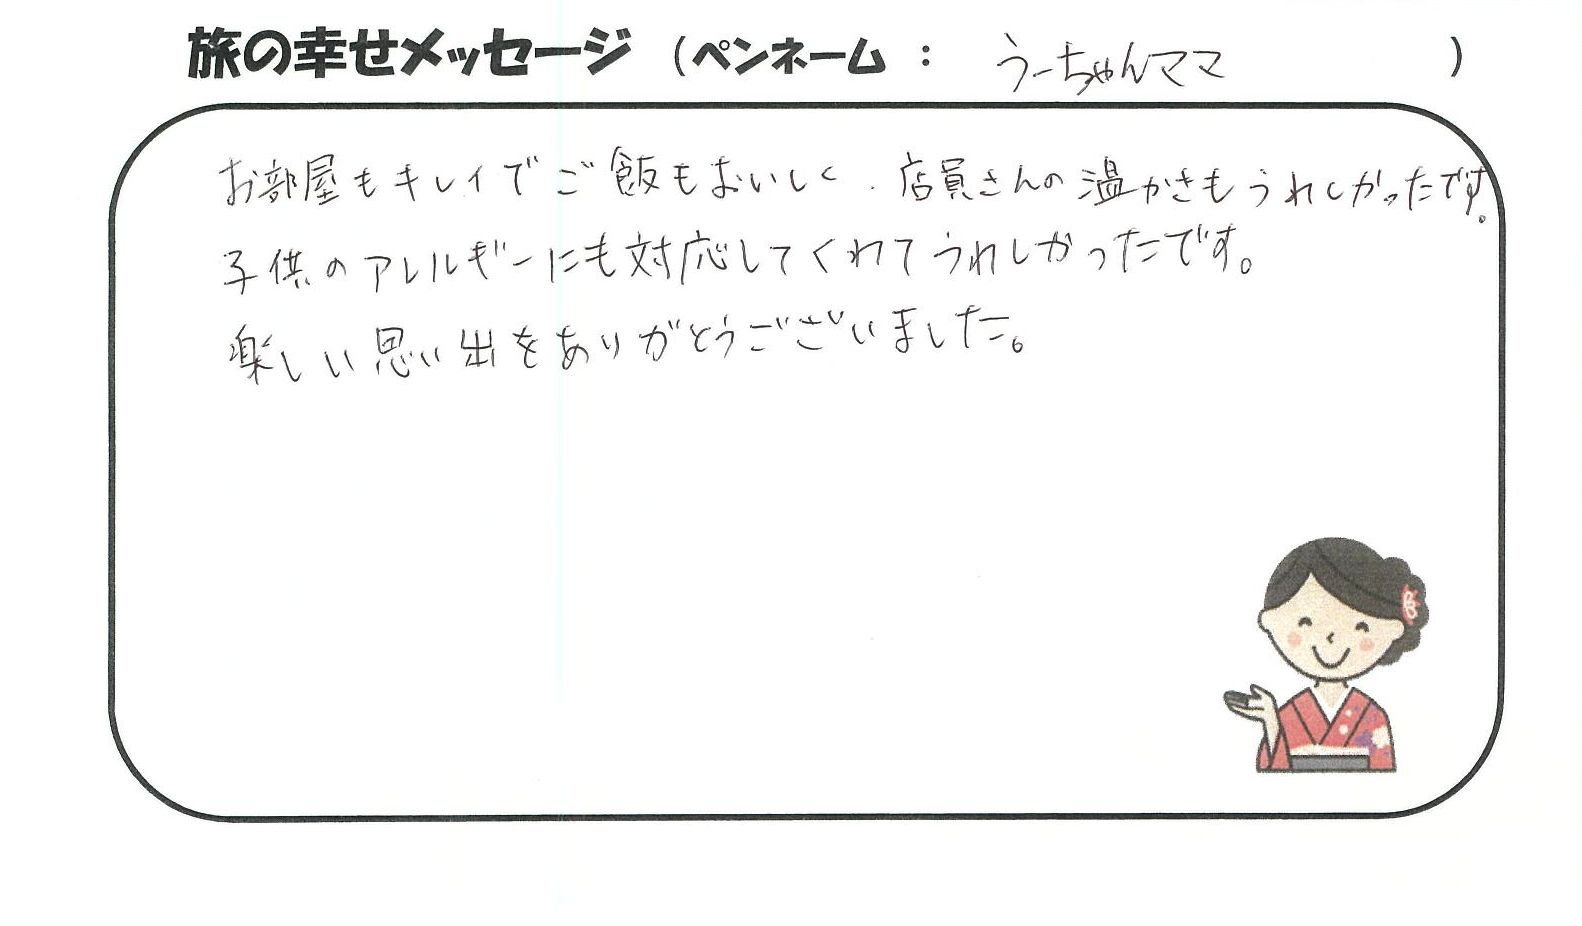 旅の幸せメッセージ （ペンネーム ： うーちゃんママ ）
お部屋もキレイでご飯もおいしく、店員さんの温かさもうれしかったです。
子供のアレルギーにも対応してくれてうれしかったです。
楽しい思い出をありがとうございました。